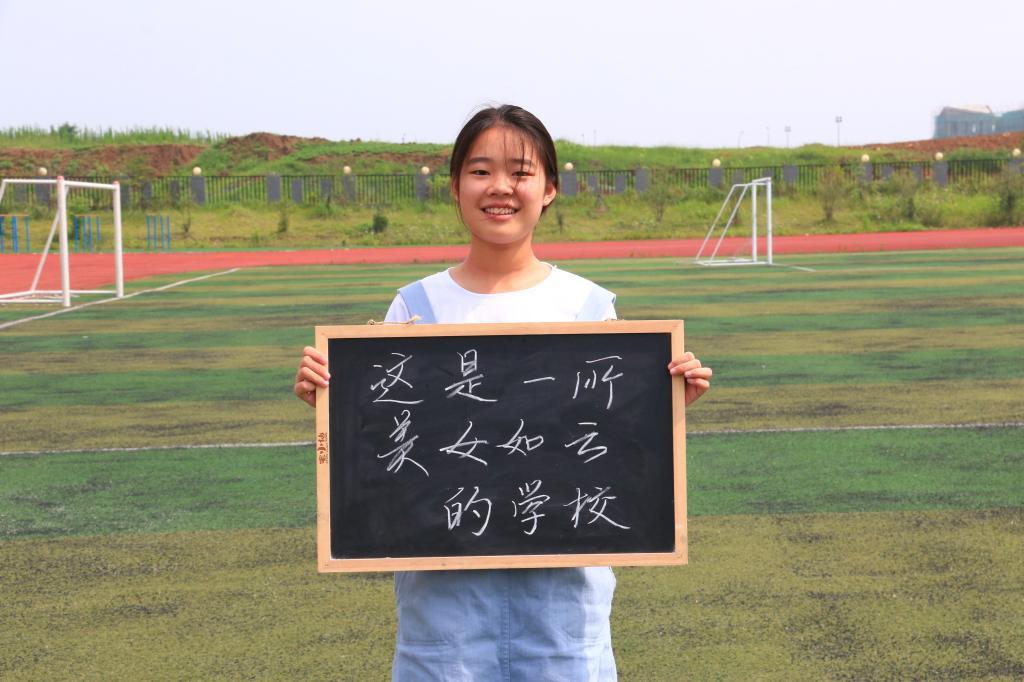 这是一所
美女如云
的学校